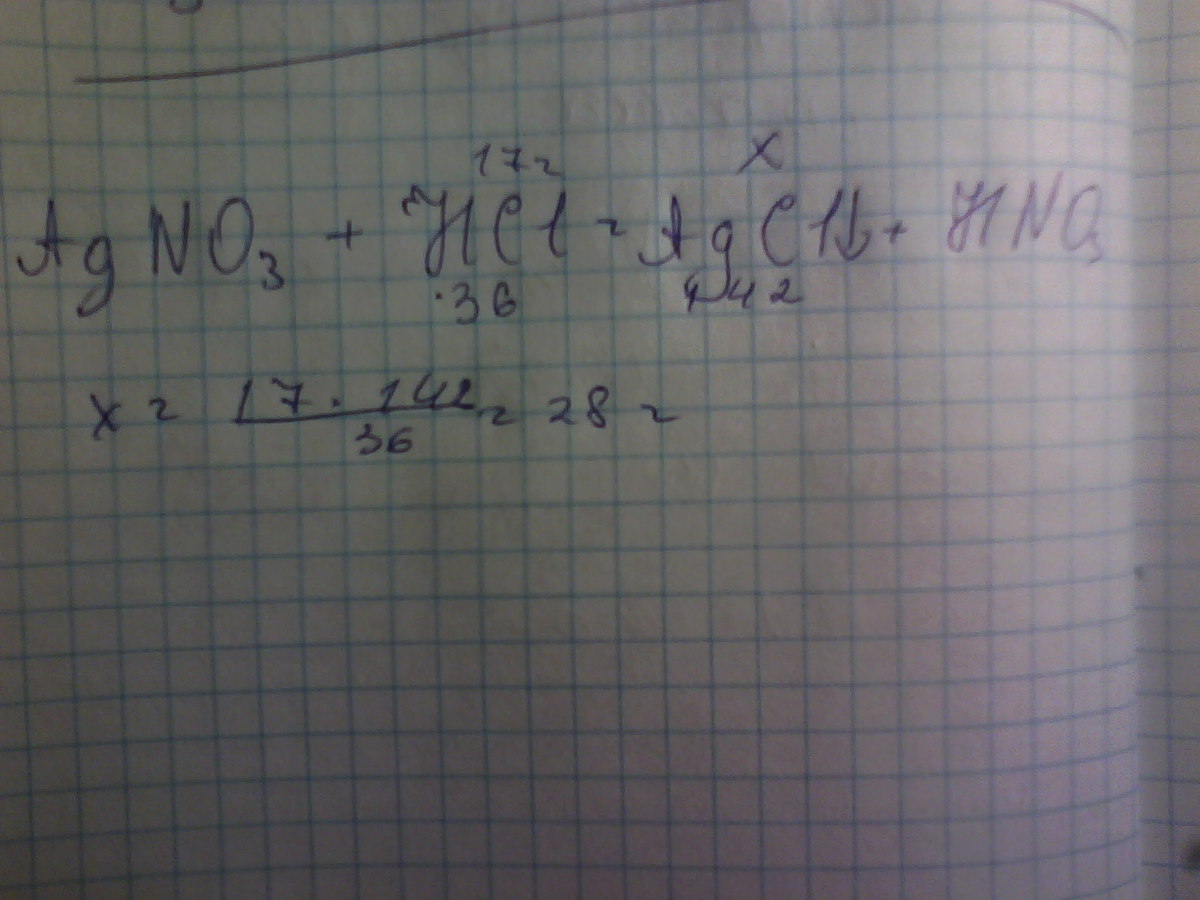 17г x
AgNO3 + HCl = AgCl↓ + HNO3
36 142
x = 17 · 142 / 36 = 28 г